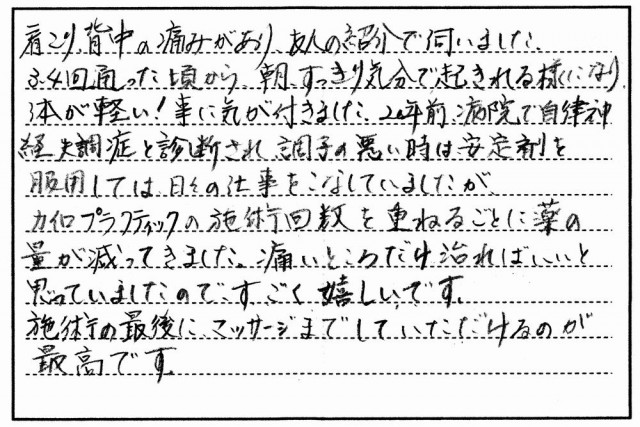 肩こり、背中の痛みがあり、友人の紹介で伺いました。
3.4回通った頃から、朝、すっきり気分で起きれる様になり
体が軽い!事に気が付きました。20年前、病院で自律神
経失調症と診断され、調子の悪い時は安定剤を
服用しては、日々の仕事をこなしていましたが、
カイロプラクティックの施術回数を重ねるごとに薬の
量が減ってきました。痛いところだけ治ればいいと
思っていましたので、すごく嬉しいです。
施術の最後に、マッサージまでしていただけるのが
最高です。